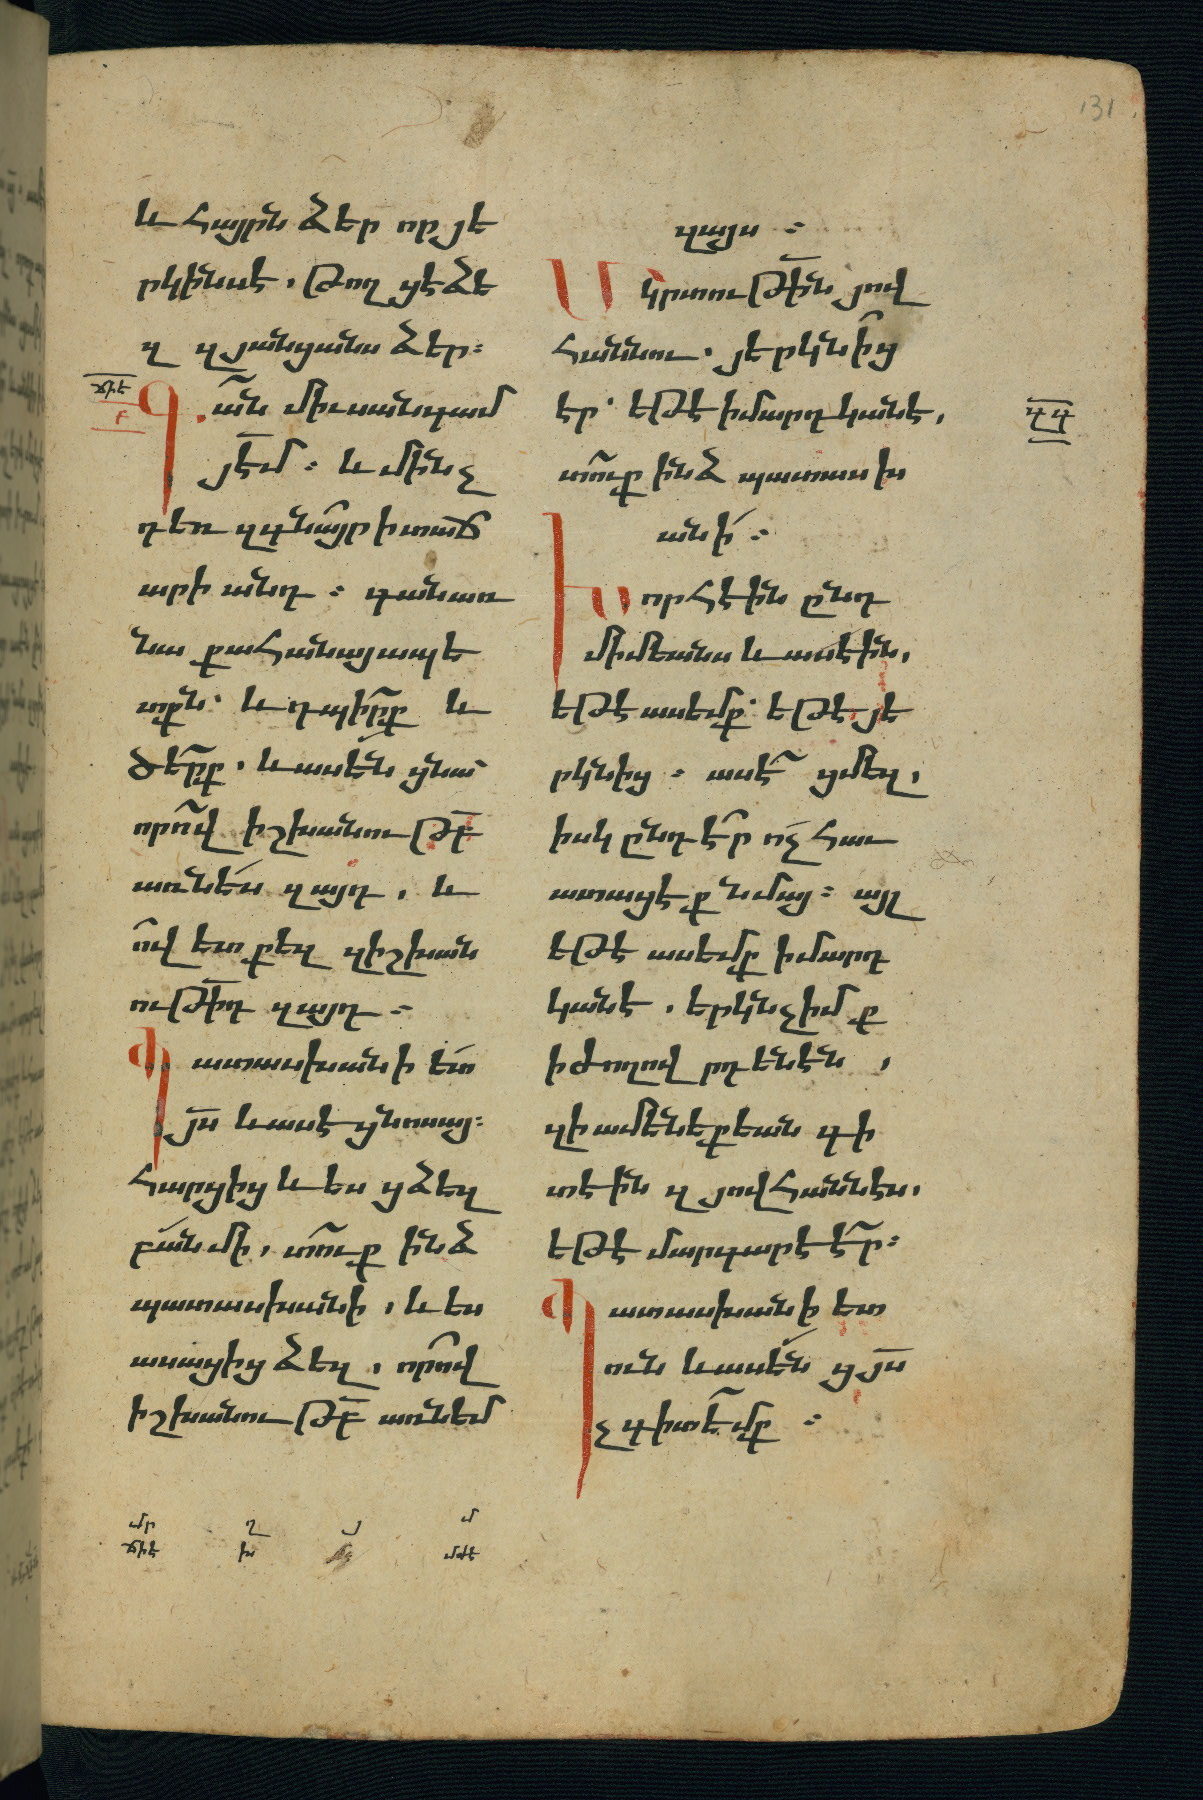 131
և հայրն ձեր որ յե
րկինսէ, թող ցէ ձե
զ զյանցանս ձեր:
ճիէ
բ
Գան միւսանգամ
յէ̅մ: և մինչ
դեռ զգնայր ի տաճ
արի անդ: գան առ
նա քահանայապե
տքն՝ և դպիրք և
ծերք, և ասեն ցնա
որով իշխանութբ̅
առնես զայդ, և
ով ետ քեզ զիշխան
ութի̅դ զայդ:
Պատասխանի ետ
յս̅ և ասէ ցնոսայ:
հարցից և ես ցձեզ
բան մի, տուք ինձ
պատասխանի, և ես
ասացից ձեզ, որով
իշխանութբ̅ առնեմ
զայս:
Մկրտութի̅ն յով
հաննու. յերկնից
էր՝ եթէ ի մարդկանէ,
տուք ինձ պատասխ
անի:
Խորհէին ընդ
միմեանս և ասէին,
եթէ ասեմք՝ եթէ յե
րկնից: ասէ ցմեզ,
իսկ ընդէր ոչ հաւ
ատացէք նմայ: այլ
եթէ ասեմք ի մարդ
կանէ, երկնչիմք
ի ժողովրդենէն,
զի ամենեքեան գի
տէին զյովհաննէս,
եթէ մարգարէ էր:
Պատասխանի ետ
ուն և ասեն ցյս̅
չգիտեմք:
մր ղ յ մ
ճիէ խ մժէ